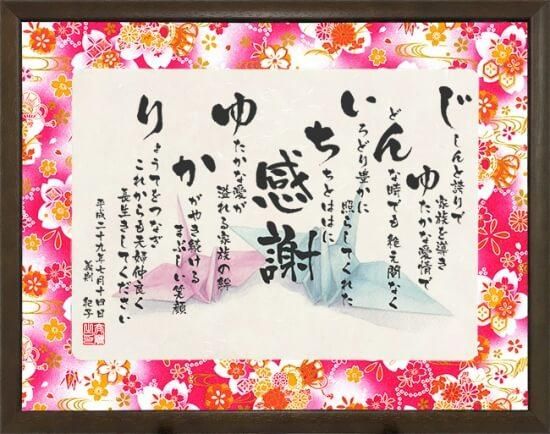 じしんと誇りで
家族を導き
ゆたかな愛情で
どんな時でも 絶え間なく
いろどり豊かに
照らしてくれた
ちちとははに
感謝
ゆたかな愛が
溢れる家族の絆
かがやき続ける
まぶしい笑顔
りょうてをつなぎ
これからも夫婦仲良く
長生きしてください
平成二十九年七月十四日
紀子